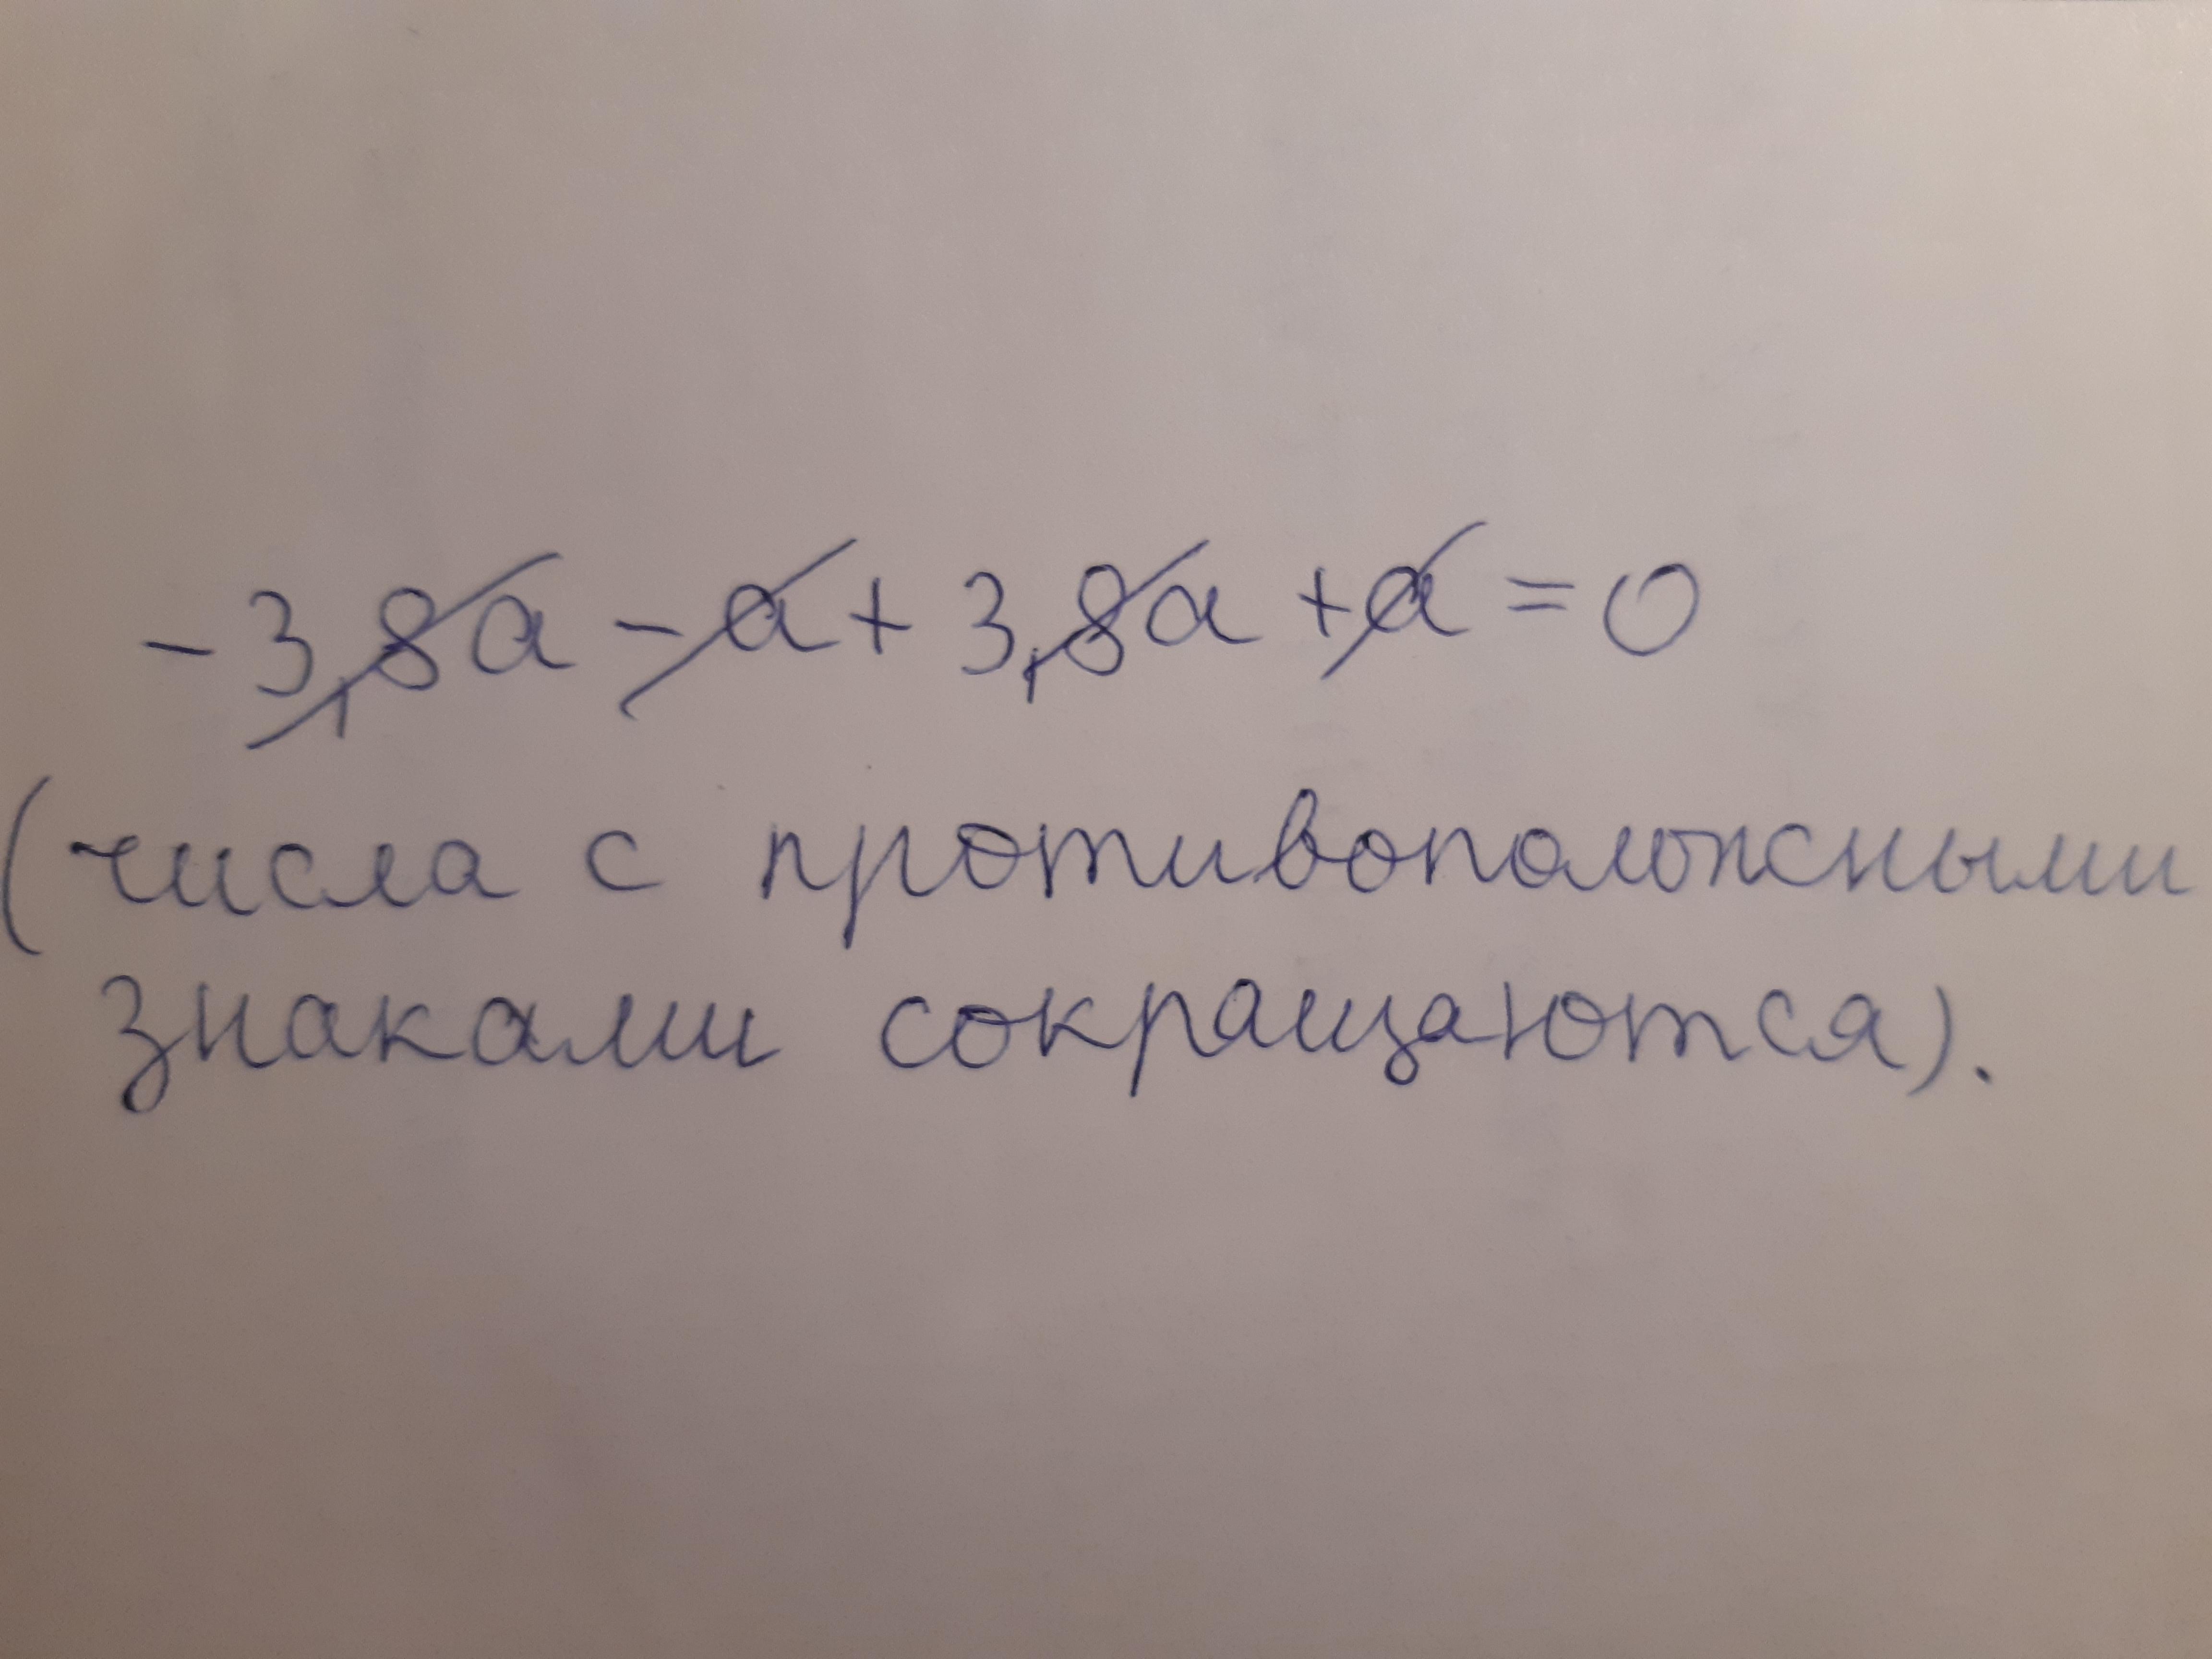 -3,8a - a + 3,8a + a = 0
(числа с противоположными
знаками сокращаются).